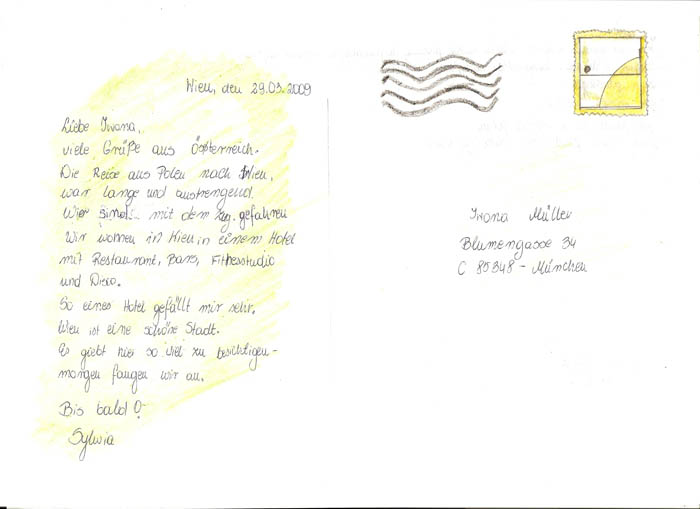 Wien, den 29.03.2009
Liebe Iwona,
viele Grüße aus Österreich.
Die Reise aus Polen nach Wien,
war lange und anstrengend.
Wier sind mit dem Zug gefahren
Wir wohnen in Wien in einem Hotel
mit Restaurant, Bars, Fitnesstudio
und Disco.
So eines Hotel gefällt mir sehr.
Wien ist eine schöne Stadt.
Es giebt hier so viel zu besichtigen -
morgen fangen wir an.
Bis bald!
Sylwia
Iwona Müller
Blumengasse 34
C 85348 - München